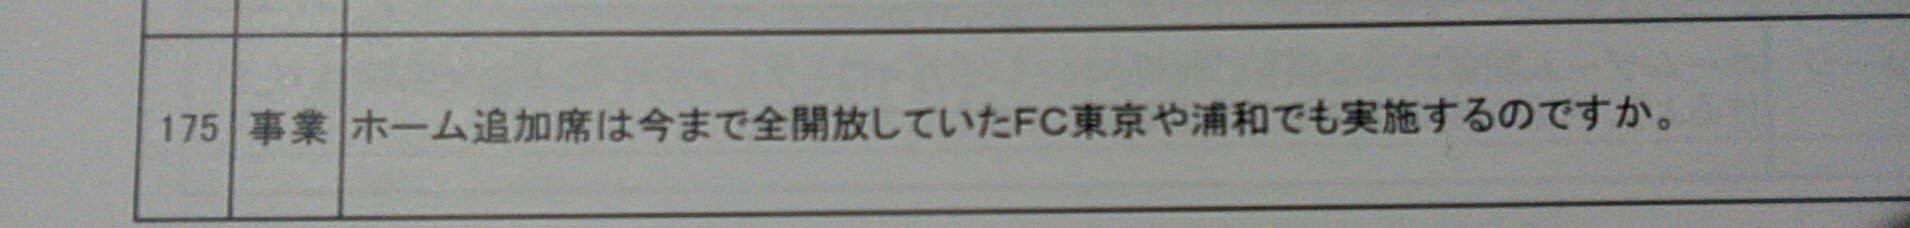 175 事業 ホーム追加席は今まで全開放していたFC東京や浦和でも実施するのですか。